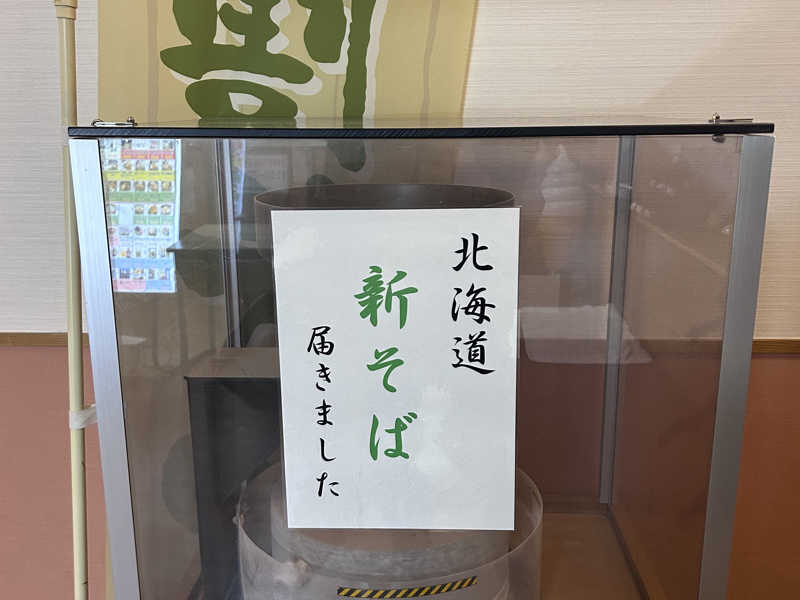 北海道
新そば
届きました